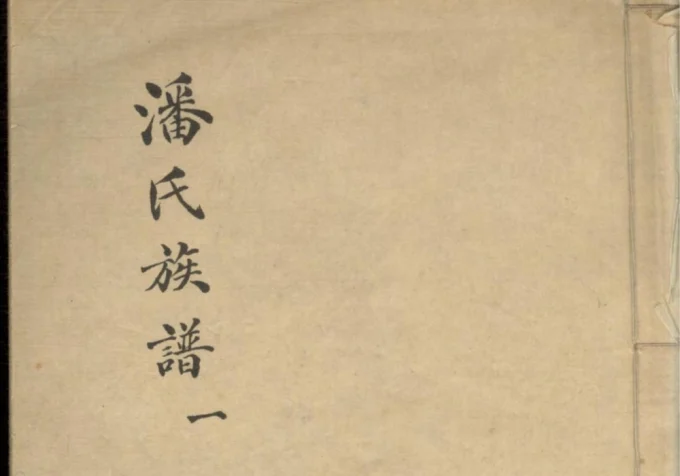 潘氏族譜
一